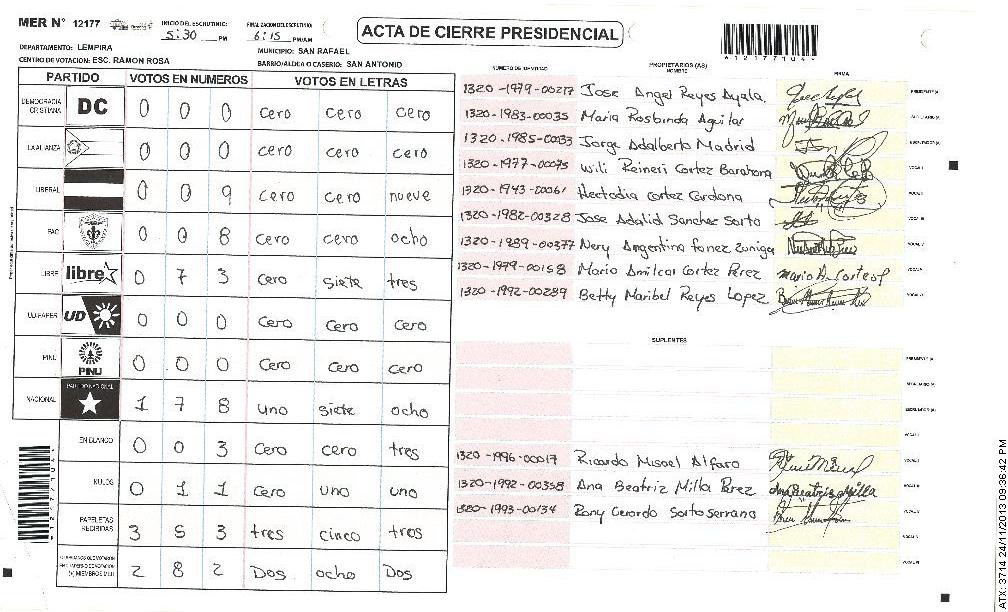 MER N° 12177
INICIO DEL ESCRUTINIO: 5:30 PM
FINALIZACION DEL ESCRUTINIO: 6:15 PM/AM
ACTA DE CIERRE PRESIDENCIAL
*12177104*
DEPARTAMENTO: LEMPIRA
MUNICIPIO: SAN RAFAEL
CENTRO DE VOTACION: ESC. RAMON ROSA
BARRIO/ALDEA O CASERIO: SAN ANTONIO
PARTIDO VOTOS EN NUMEROS VOTOS EN LETRAS
DEMOCRACIA CRISTIANA DC 0 0 0 cero cero cero
LA ALIANZA 0 0 0 cero cero cero
LIBERAL 0 0 9 cero cero nueve
PAC 0 0 8 cero cero ocho
LIBRE libre 0 7 3 cero siete tres
UD-FAPER UD 0 0 0 cero cero cero
PINU PINU 0 0 0 cero cero cero
NACIONAL PARTIDO NACIONAL 1 7 8 uno siete ocho
EN BLANCO 0 0 3 cero cero tres
NULOS 0 1 1 cero uno uno
PAPELETAS RECIBIDAS 3 5 3 tres cinco tres
2 8 2 Dos ocho Dos
NUMERO DE IDENTIDAD PROPIETARIOS (AS) NOMBRE FIRMA
1320-1979-00217 Jose Angel Reyes Ayala PRESIDENTE (A)
1320-1983-00035 Maria Rosbinda Aguilar SECRETARIO (A)
1320-1985-00033 Jorge Adalberto Madrid ESCRUTADOR (A)
1320-1977-00075 Wili Reineri Cortez Barahona VOCAL I
1320-1943-00061 Hectodia Cortez Cardona VOCAL II
1320-1982-00328 Jose Adalid Sanchez Sorto VOCAL III
1320-1989-00377 Nery Argentina Funez Zuniga
1320-1979-00158 Mario Amilcar Cortez Perez
1320-1992-00289 Betty Maribel Reyes Lopez
SUPLENTES
PRESIDENTE (A)
SECRETARIO (A)
ESCRUTADOR (A)
VOCAL I
1320-1996-00017 Ricardo Misael Alfaro
1320-1992-00358 Ana Beatriz Milla Perez Ana Beatriz Milla
1320-1993-00134 Rony Gerardo Sorto Serrano
*12177104*
ATX: 3714 24/11/2013 09:36:42 PM